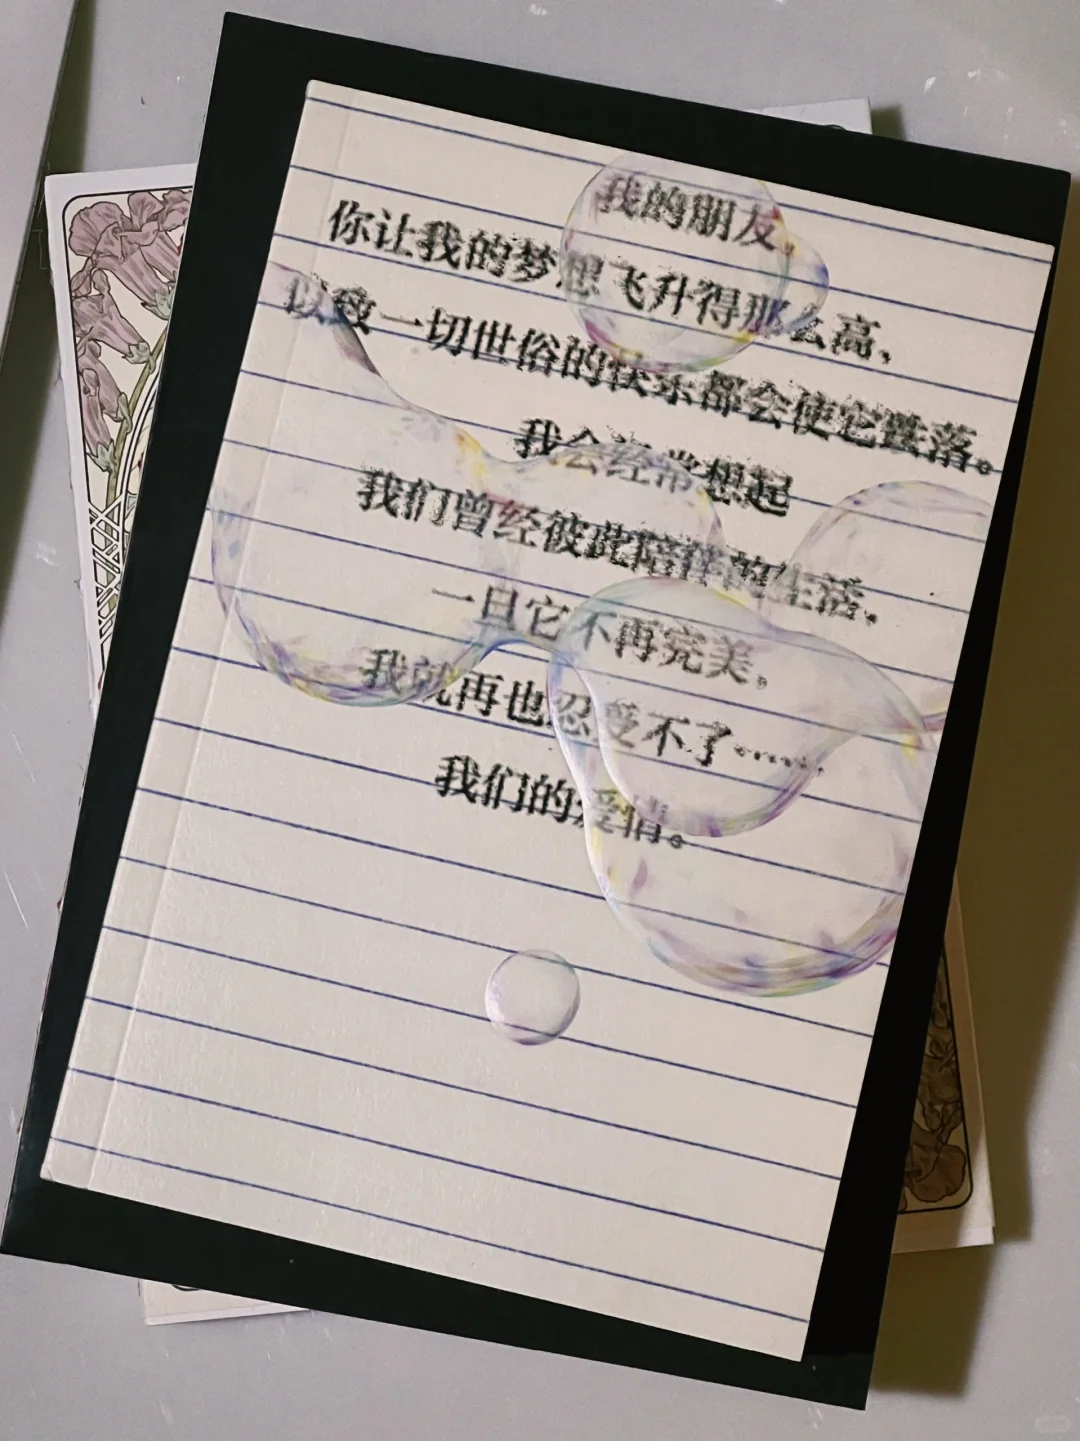 我的朋友，
你让我的梦想飞升得那么高，
以致一切世俗的快乐都会使它跌落。
我会经常想起
我们曾经彼此陪伴的生活，
一旦它不再完美。
我就再也忍受不了……
我们的爱情。